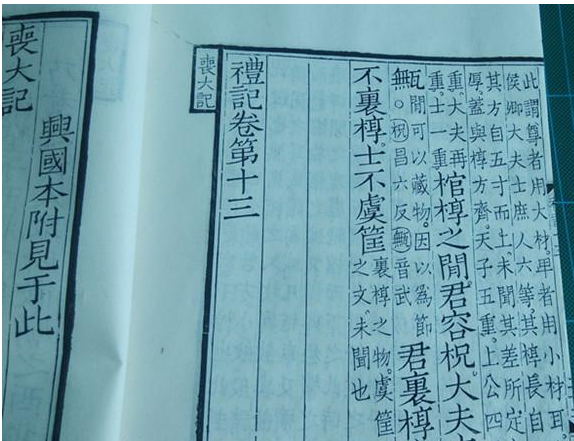 此謂尊者用大材。卑者用小材耳
侯卿大夫士庶人六等。其椁長自
其方自五寸而上。未聞其差所定
厚。蓋與椁方齊。天子五重。上公四
重。大夫再
重。士一重
棺椁之閒。君容柷。大夫
甒
閒可以藏物。因以為節
○柷昌六反甒音武
君裏椁
不裏椁。士不虞筐
裏椁之物。虞筐
之文。未聞也
禮記卷第十三
喪大記
興國本附見于此
喪大記